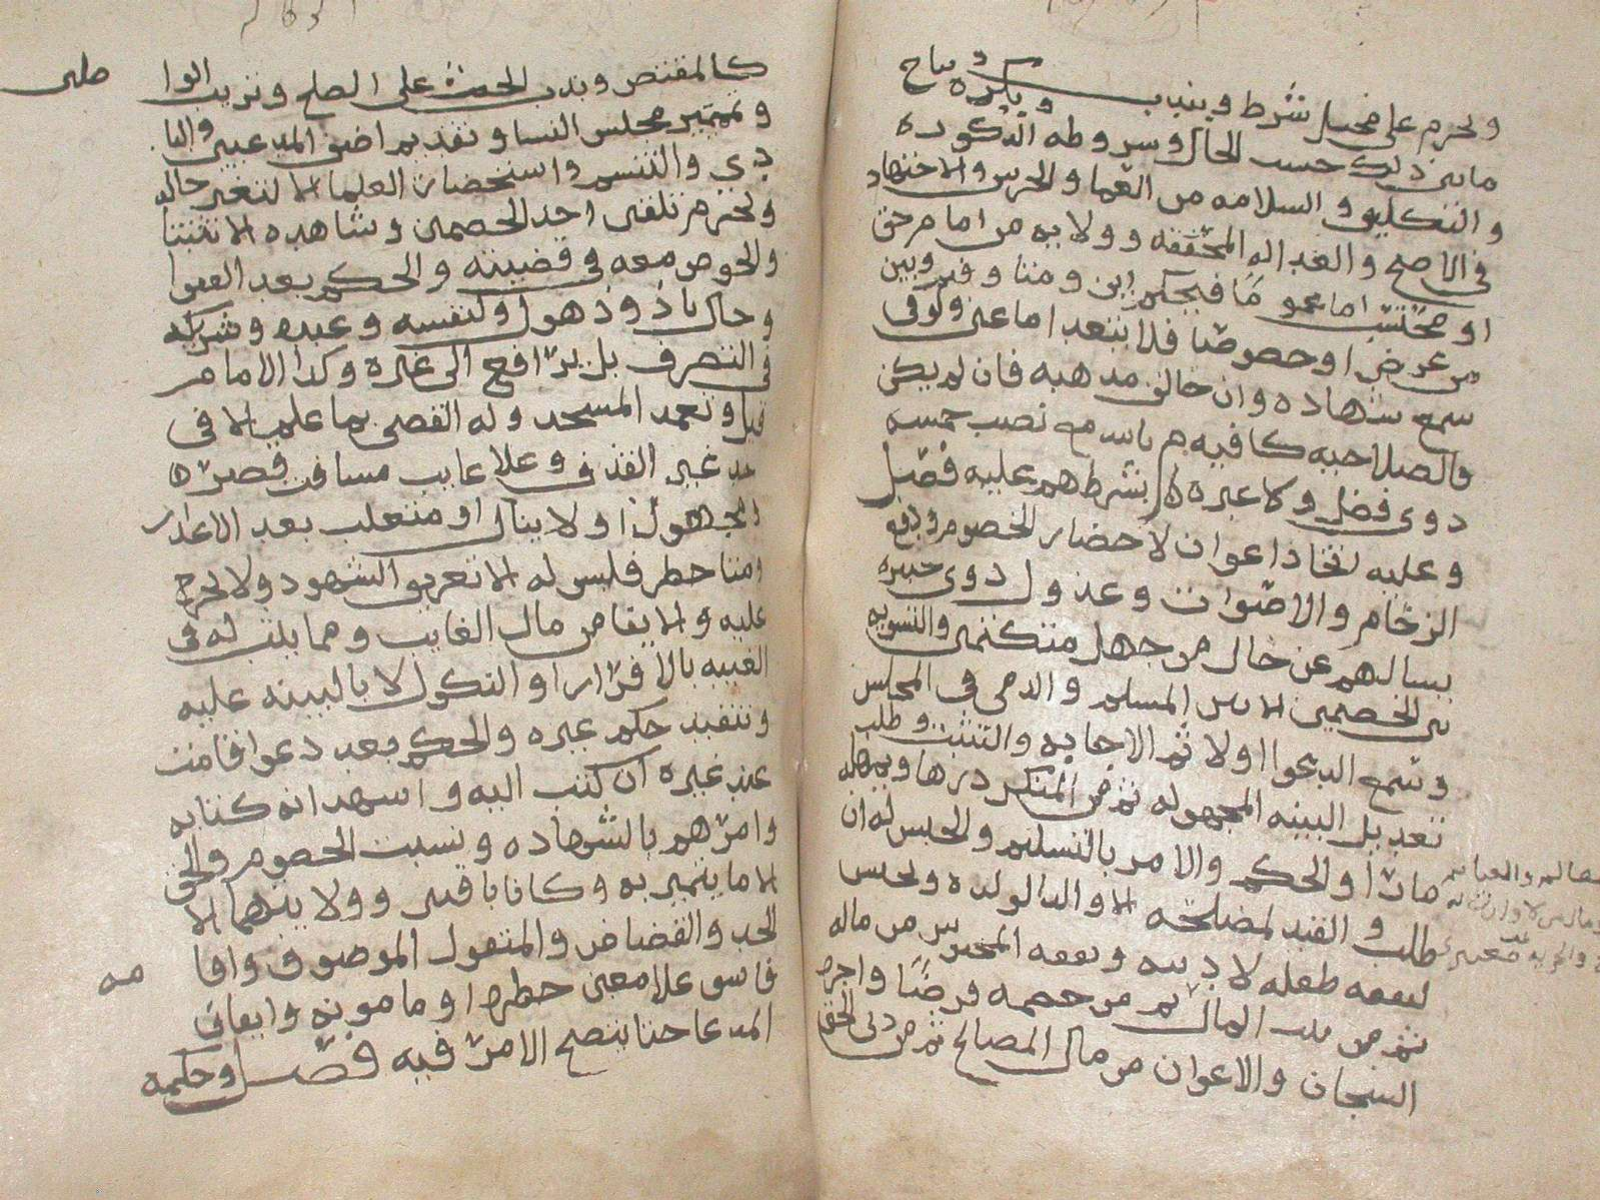 ويحرم على مختل شرط ويندب ويكره ويباح
ما بين ذلك حسب الحال وشروطه الذكوره
والتكليف والسلامه من العما والخرس والاجتهاد
في الاصح والعداله المحققه وولايه من امام حق
او محتسب اما عموما فيحكم اين ومتا وفيم وبين
من عرض او خصوصا فلا يتعد اما عين ولو في
سمع شهاده وان خالف مذهبه فان لم يكن
فالصلاحيه كافيه م بالله مع نصب خمسه
ذوي فضل ولا عبره بشرطهم عليه فصل
وعليه اتخاذ اعوان لاحضار الخصوم ودفع
الزحام والاصوات وعدول ذوي خبره
يسالهم عن حال من جهل متكتمين والتسويه
بين الخصمين الا بين المسلم والذمي في المجلس
وسمع الدعوا اولا ثم الاجابه والتثبت وطلب
تعديل البينه المجهوله ثم من المنكر درها ويمهله
ما را والحكم والامر بالتسليم والحبس له ان
طلب والقيد لمصلحه الا والدا لولده ويحبس
لنفقه طفله لا دينه ونفقه المحبوس من ماله
ثم من بيت المال ثم من خصمه قرضا واجره
السجان والاعوان من مال المصالح ثم من ذي الحق
كالمقتص وندب الحث على الصلح وترتيب الوا
صلين
وتمييز مجلس النسا وتقديم اضعف المدعيين والبا
دي والتنسم واستحضار العلما الا لتغير حاله
ويحرم تلقين احد الخصمين وشاهده الا تثبتا
والخوض معه في قضيته والحكم بعد الفتوا
وحال تاذ وذهول ولنفسه وعبده وشريكه
في التصرف بل يرافع الى غيره وكذا الامام
قيل وتعمد المسجد وله القضى بما علم الا في
حد غير القذف وعلا غايب مسافه قصر
او مجهول او لا ينال او متغلب بعد الاعذار
ومتا حضر فليس له الا تعريف الشهود ولا يجرح
عليه والايفا من مال الغايب ومما يثبت له في
الغيبه بالاقرار او النكول لا بالبينه عليه
وتنفيذ حكم غيره والحكم بعد دعوا قامت
عند غيره ان كتب اليه واشهد انه كتابه
وامرهم بالشهاده ونسبت الخصوم والحق
الا ما يتميز به وكانا باقيين وولايتهما الا
الحد والقصاص والمنقول الموصوف واقا
مه
فاسق علا معين حضره او مامونه وايقاف
المدعا حتا يتضح الامر فيه فصل وحكمه